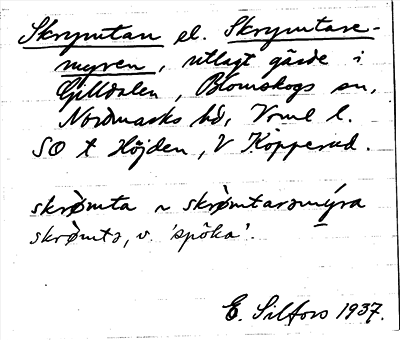 Skrymtan el. Skrymtare-
myren, utlagt gärde i
Gilldalen, Blomskogs sn,
Nordmarks hd, Vrml l.
SO t Höjden, V Köpperud.
skrømta ~ skrømtarəmýra
skrømtə, v. 'spöka'.
E. Silfors 1937.